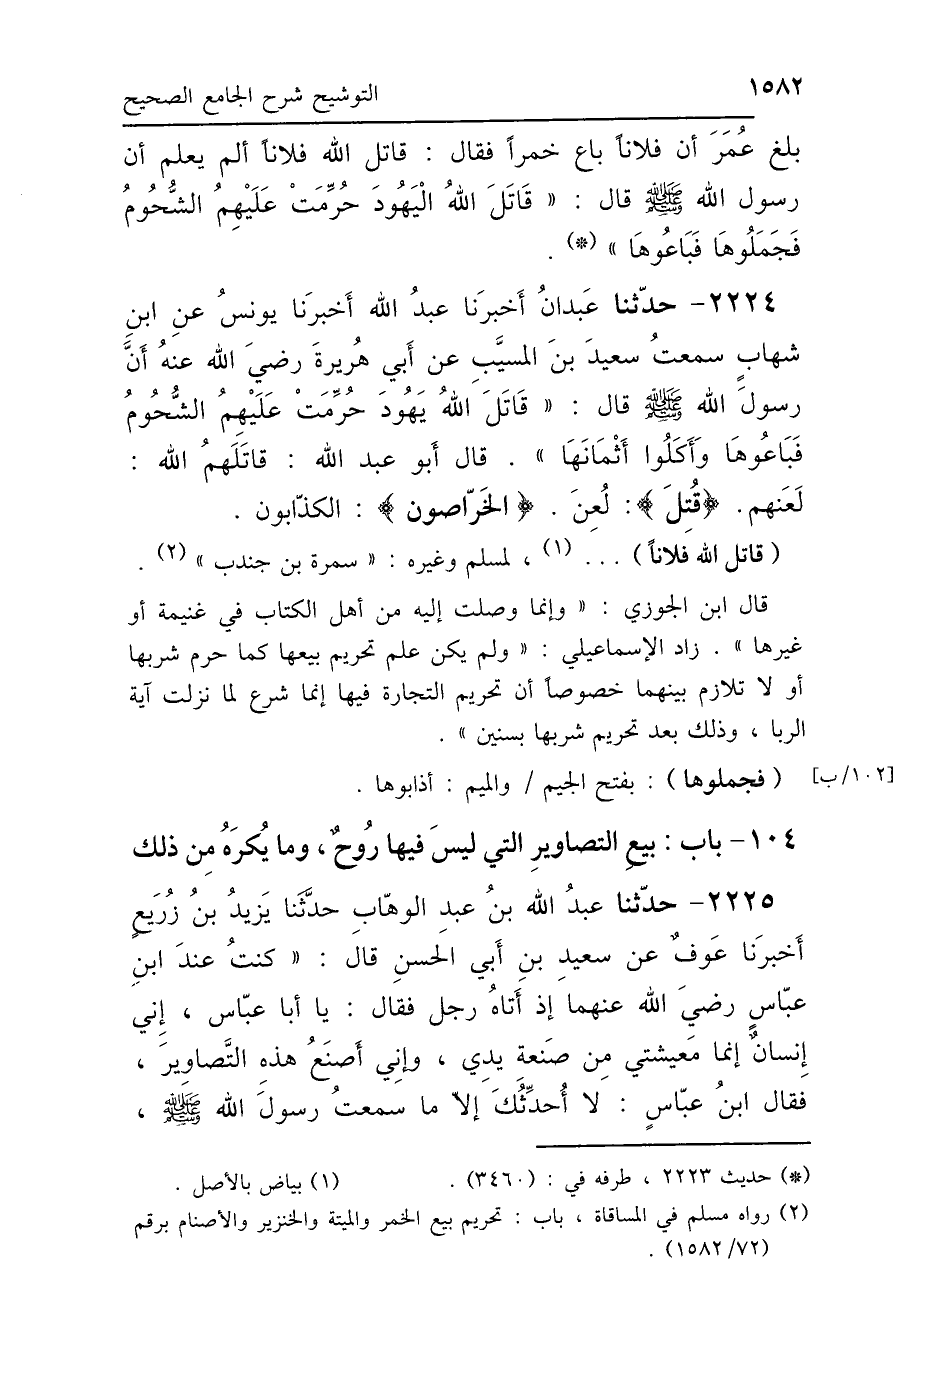 ١٥٨٢
التوشيح شرح الجامع الصحيح
بلغ عُمَرَ أن فلاناً باع خمراً فقال : قاتل الله فلاناً ألم يعلم أن
رسول الله ﷺ قال : « قَاتَلَ اللهُ الْيَهُودَ حُرِّمَتْ عَلَيْهِمُ الشُّحُومُ
فَجَمَلُوهَا فَبَاعُوهَا » (*) .
٢٢٢٤- حدّثنا عَبدانُ أَخبرَنا عبدُ الله أَخبرَنا يونسُ عنِ ابنِ
شهابٍ سمعتُ سعيدَ بنَ المسيَّبِ عن أَبي هُريرةَ رضيَ الله عنهُ أنَّ
رسولَ الله ﷺ قال : « قَاتَلَ اللهُ يَهُودَ حُرِّمَتْ عَلَيْهِمُ الشُّحُومُ
فَبَاعُوهَا وَأَكَلُوا أَثْمَانَهَا » . قال أبو عبد الله : قاتَلَهمُ الله :
لَعَنهم. ﴿قُتِلَ﴾: لُعِنَ . ﴿ الخَرّاصون ﴾ : الكذّابون .
( قاتل الله فلاناً ) ... (١) ، لمسلم وغيره : « سمرة بن جندب » (٢) .
قال ابن الجوزي : « وإنما وصلت إليه من أهل الكتاب في غنيمة أو
غيرها » . زاد الإسماعيلي : « ولم يكن علم تحريم بيعها كما حرم شربها
أو لا تلازم بينهما خصوصاً أن تحريم التجارة فيها إنما شرع لما نزلت آية
الربا ، وذلك بعد تحريم شربها بسنين » .
[١٠٢/ب] ( فجملوها ) : بفتح الجيم / والميم : أذابوها .
١٠٤- باب : بيعِ التصاويرِ التي ليسَ فيها رُوحٌ، وما يُكرَهُ مِن ذلك
٢٢٢٥- حدّثنا عبدُ الله بنُ عبدِ الوهّابِ حدَّثَنا يَزيدُ بنُ زُرَيعٍ
أَخبرَنا عَوفٌ عن سعيدِ بنِ أَبي الحسنِ قال : « كنتُ عندَ ابنِ
عبّاسٍ رضيَ الله عنهما إذ أَتاهُ رجل فقال : يا أبا عبّاس ، إني
إنسانٌ إنما مَعيشتي مِن صَنعةِ يدِي ، وإني أَصنَعُ هذهِ التَّصاويرَ ،
فقال ابنُ عبّاسٍ : لا أُحدِّثُكَ إلاّ ما سمعتُ رسولَ الله ﷺ ،
(*) حديث ٢٢٢٣ ، طرفه في : (٣٤٦٠) . (١) بياض بالأصل .
(٢) رواه مسلم في المساقاة ، باب : تحريم بيع الخمر والميتة والخنزير والأصنام برقم
(١٥٨٢/٧٢) .